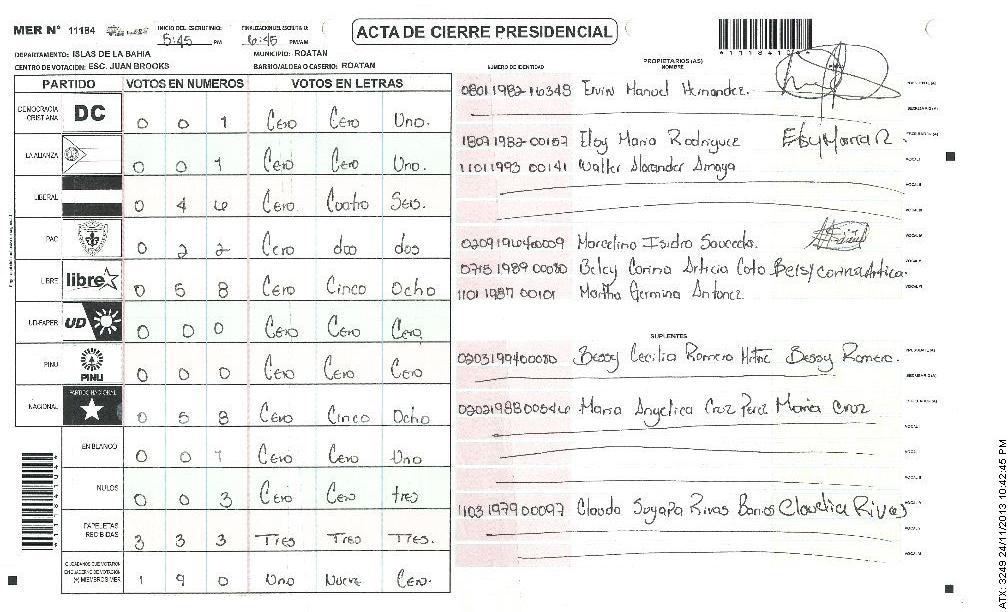 MER N° 11184
INICIO DEL ESCRUTINIO: 5:45 PM
6:45 PM/AM
ACTA DE CIERRE PRESIDENCIAL
DEPARTAMENTO: ISLAS DE LA BAHIA
MUNICIPIO: ROATAN
CENTRO DE VOTACIÓN: ESC. JUAN BROOKS
BARRIO/ALDEA O CASERIO: ROATAN
PARTIDO VOTOS EN NUMEROS VOTOS EN LETRAS
DEMOCRACIA CRISTIANA DC 0 0 1 Cero Cero Uno.
LA ALIANZA 0 0 1 Cero Cero Uno.
LIBERAL 0 4 6 Cero Cuatro Seis.
PAC 0 2 2 Cero dos dos
LIBRE libre 0 5 8 Cero Cinco Ocho
UD-FAPER UD 0 0 0 Cero Cero Cero
PINU PINU 0 0 0 Cero Cero Cero
NACIONAL PARTIDO NACIONAL 0 5 8 Cero Cinco Ocho
EN BLANCO 0 0 1 Cero Cero Uno
NULOS 0 0 3 Cero Cero tres
PAPELETAS RECIBIDAS 3 3 3 Tres Tres Tres.
CIUDADANOS QUE VOTARON EN CUADERNO DE VOTACION (+) MIEMBROS MER 1 9 0 Uno Nueve Cero.
NUMERO DE IDENTIDAD
PROPIETARIOS (AS)
NOMBRE
0801 1982 16348 Ervin Manuel Hernandez.
1807 1982 00157 Elsy Maria Rodriguez Elsy Maria R
1101 1993 00141 Walter Alexander Amaya
Marcelino Isidro Sauceda.
0715 1989 00080 Corina Articia Coto Betsy corina Artica.
1101 1987 00101 Martha Germina Antonez
SUPLENTES
0203199400080 Bessy Cecilia Romero Bessy Romero.
Maria Angelica Cruz Perez Maria Cruz
1103 1979 00097 Claudia Suyapa Rivas Barrios Claudia Rivas
ATX: 3249 24/11/2013 10:42:45 PM